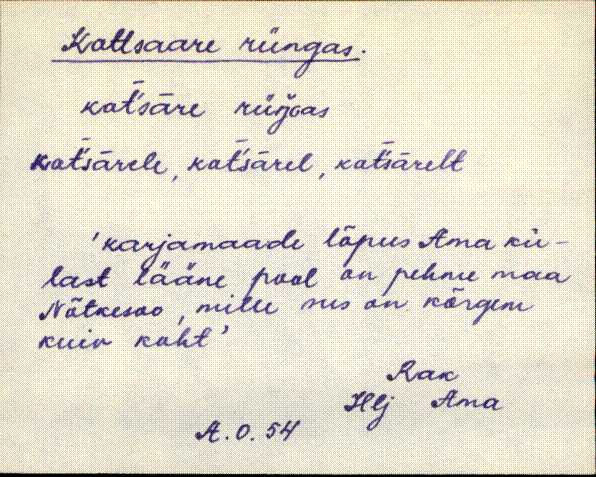 Kattsaare rüngas.
kat̄'sāre rüŋ̆Gas
kat̄'sārele, kat̄'sārel, kat̄'sārelt
'karjamaade lõpus Ama kü-
last lääne pool on pehme maa
Nõtkesoo, mille sus on kõrgem
kuiv koht'
Rak
Hlj Ama
A.O. 54